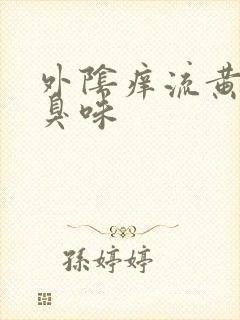 外陰痒流黄
臭味
孫婷婷